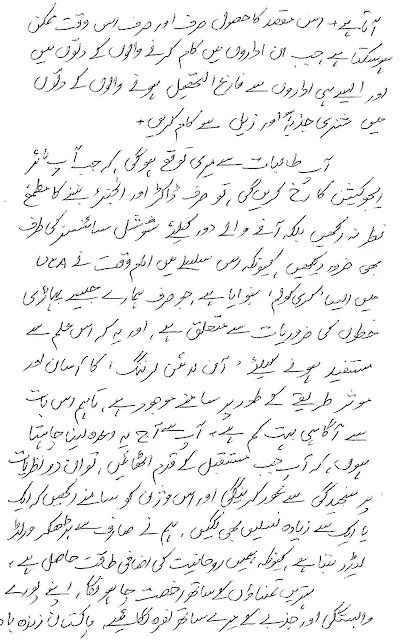 آتا ہے۔ اس مقصد کا حصول صرف اور صرف اس وقت ممکن
ہو سکتا ہے جب ان اداروں میں کام کرنے والوں کے دلوں میں
اور ایسے ہی اداروں سے فارغ التحصیل ہونے والوں کے دلوں
میں مشنری جذبہ اور سے کام کریں۔
آپ طالبات سے میری توقع ہوگی کہ جب آپ ہائر
ایجوکیشن کا رخ کریں گی، تو صرف ڈاکٹر اور انجنیئر بننے کا مطمع
نظر نہ رکھیں بلکہ آنے والے دور کیلئے سوشل سائنسز کی طرف
بھی ضرور دیکھیں، کیونکہ اس سلسلے میں امام وقت نے UCA
میں ایسا کری کولم بنوایا ہے، جو صرف ہمارے جیسے پہاڑی
خطوں کی ضروریات سے متعلق ہے، اور یہ کہ اس علم سے
مستفید ہونے کیلئے لرننگ، کا آسان اور
موثر طریقے کے طور پر سامنے موجود ہے، تاہم اس بات
سے آگاہی بہت کم ہے۔ آپ سے آج یہ وعدہ لینا چاہتا
ہوں، کہ آپ جب مستقبل کے قدم اٹھائیں، تو ان دو نظریات
پر سنجیدگی سے غور کریں گی اور اس وژن کو سامنے رکھیں کہ ایک
یا ایک سے زیادہ نسلیں بھی لگیں، ہم نے سے بڑھکر ورلڈ
لیڈر بننا ہے، کیونکہ ہمیں روحانیت کی اضافی طاقت حاصل ہے،
بہترین تمناؤں کے ساتھ رخصت چاہوں گا، اپنے پورے
وابستگی اور جذبے کے میرے ساتھ نعرہ لگائیے پاکستان زندہ باد